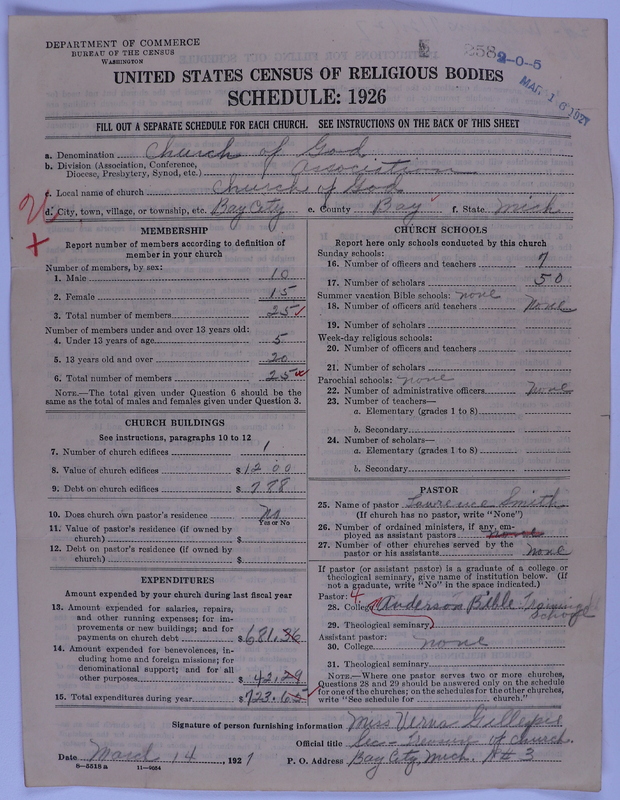 DEPARTMENT OF COMMERCE
BUREAU OF THE CENSUS
WASHINGTON
258
2-0-5
MAR 16 1927
UNITED STATES CENSUS OF RELIGIOUS BODIES
SCHEDULE: 1926
FILL OUT A SEPARATE SCHEDULE FOR EACH CHURCH. SEE INSTRUCTIONS ON THE BACK OF THIS SHEET
a. Denomination Church of God
b. Division (Association, Conference,
Diocese, Presbytery, Synod, etc.) Association
c. Local name of church Church of God
d. City, town, village, or township, etc. Bay City e. County Bay f. State Mich
MEMBERSHIP
Report number of members according to definition of
member in your church
Number of members, by sex:
1. Male 10
2. Female 15
3. Total number of members 25
Number of members under and over 13 years old:
4. Under 13 years of age 5
5. 13 years old and over 20
6. Total number of members 25
NOTE.—The total given under Question 6 should be
same as the total of males and females given under Question 3.
CHURCH BUILDINGS
See instructions, paragraphs 10 to 12
7. Number of church edifices 1
8. Value of church edifices $1200
9. Debt on church edifices $778
10. Does church own pastor's residence No
Yes or No
11. Value of pastor's residence (if owned by
church) $
12. Debt on pastor's residence (if owned by
church) $
EXPENDITURES
Amount expended by your church during last fiscal year
13. Amount expended for salaries, repairs,
and other running expenses; for im-
provements or new buildings; and for
payments on church debt $681.36
14. Amount expended for benevolences, in-
cluding home and foreign missions; for
denominational support; and for all
other purposes $42.29
15. Total expenditures during year $723.65
CHURCH SCHOOLS
Report here only schools conducted by this church
Sunday schools:
16. Number of officers and teachers 7
17. Number of scholars 50
Summer vacation Bible schools: none
18. Number of officers and teachers None
19. Number of scholars
Week-day religious schools:
20. Number of officers and teachers
21. Number of scholars
Parochial schools: none
22. Number of administrative officers None
23. Number of teachers—
a. Elementary (grades 1 to 8)
b. Secondary
24. Number of scholars—
a. Elementary (grades 1 to 8)
b. Secondary
PASTOR
25. Name of pastor Lawrence Smith
(If church has no pastor, write "None")
26. Number of ordained ministers, if any, em-
ployed as assistant pastors none
27. Number of other churches served by the
pastor or his assistants none
If pastor (or assistant pastor) is a graduate of a college or
theological seminary, give name of institution below. (If
not a graduate, write "No" in the space indicated.)
Pastor: 4
28. College Anderson Bible Training
School
29. Theological seminary
Assistant pastor:
30. College none
31. Theological seminary
NOTE.—Where one pastor serves two or more churches,
Questions 28 and 29 should be answered only on the schedule
for one of the churches; on the schedules for the other churches,
write "See schedule for church."
Signature of person furnishing information Miss Verna Gillespie
Official title Sec - Treasure of Church
Date March 14, 1927 P. O. Address Bay City, Mich. R# 3
8—5518 a 11—9064